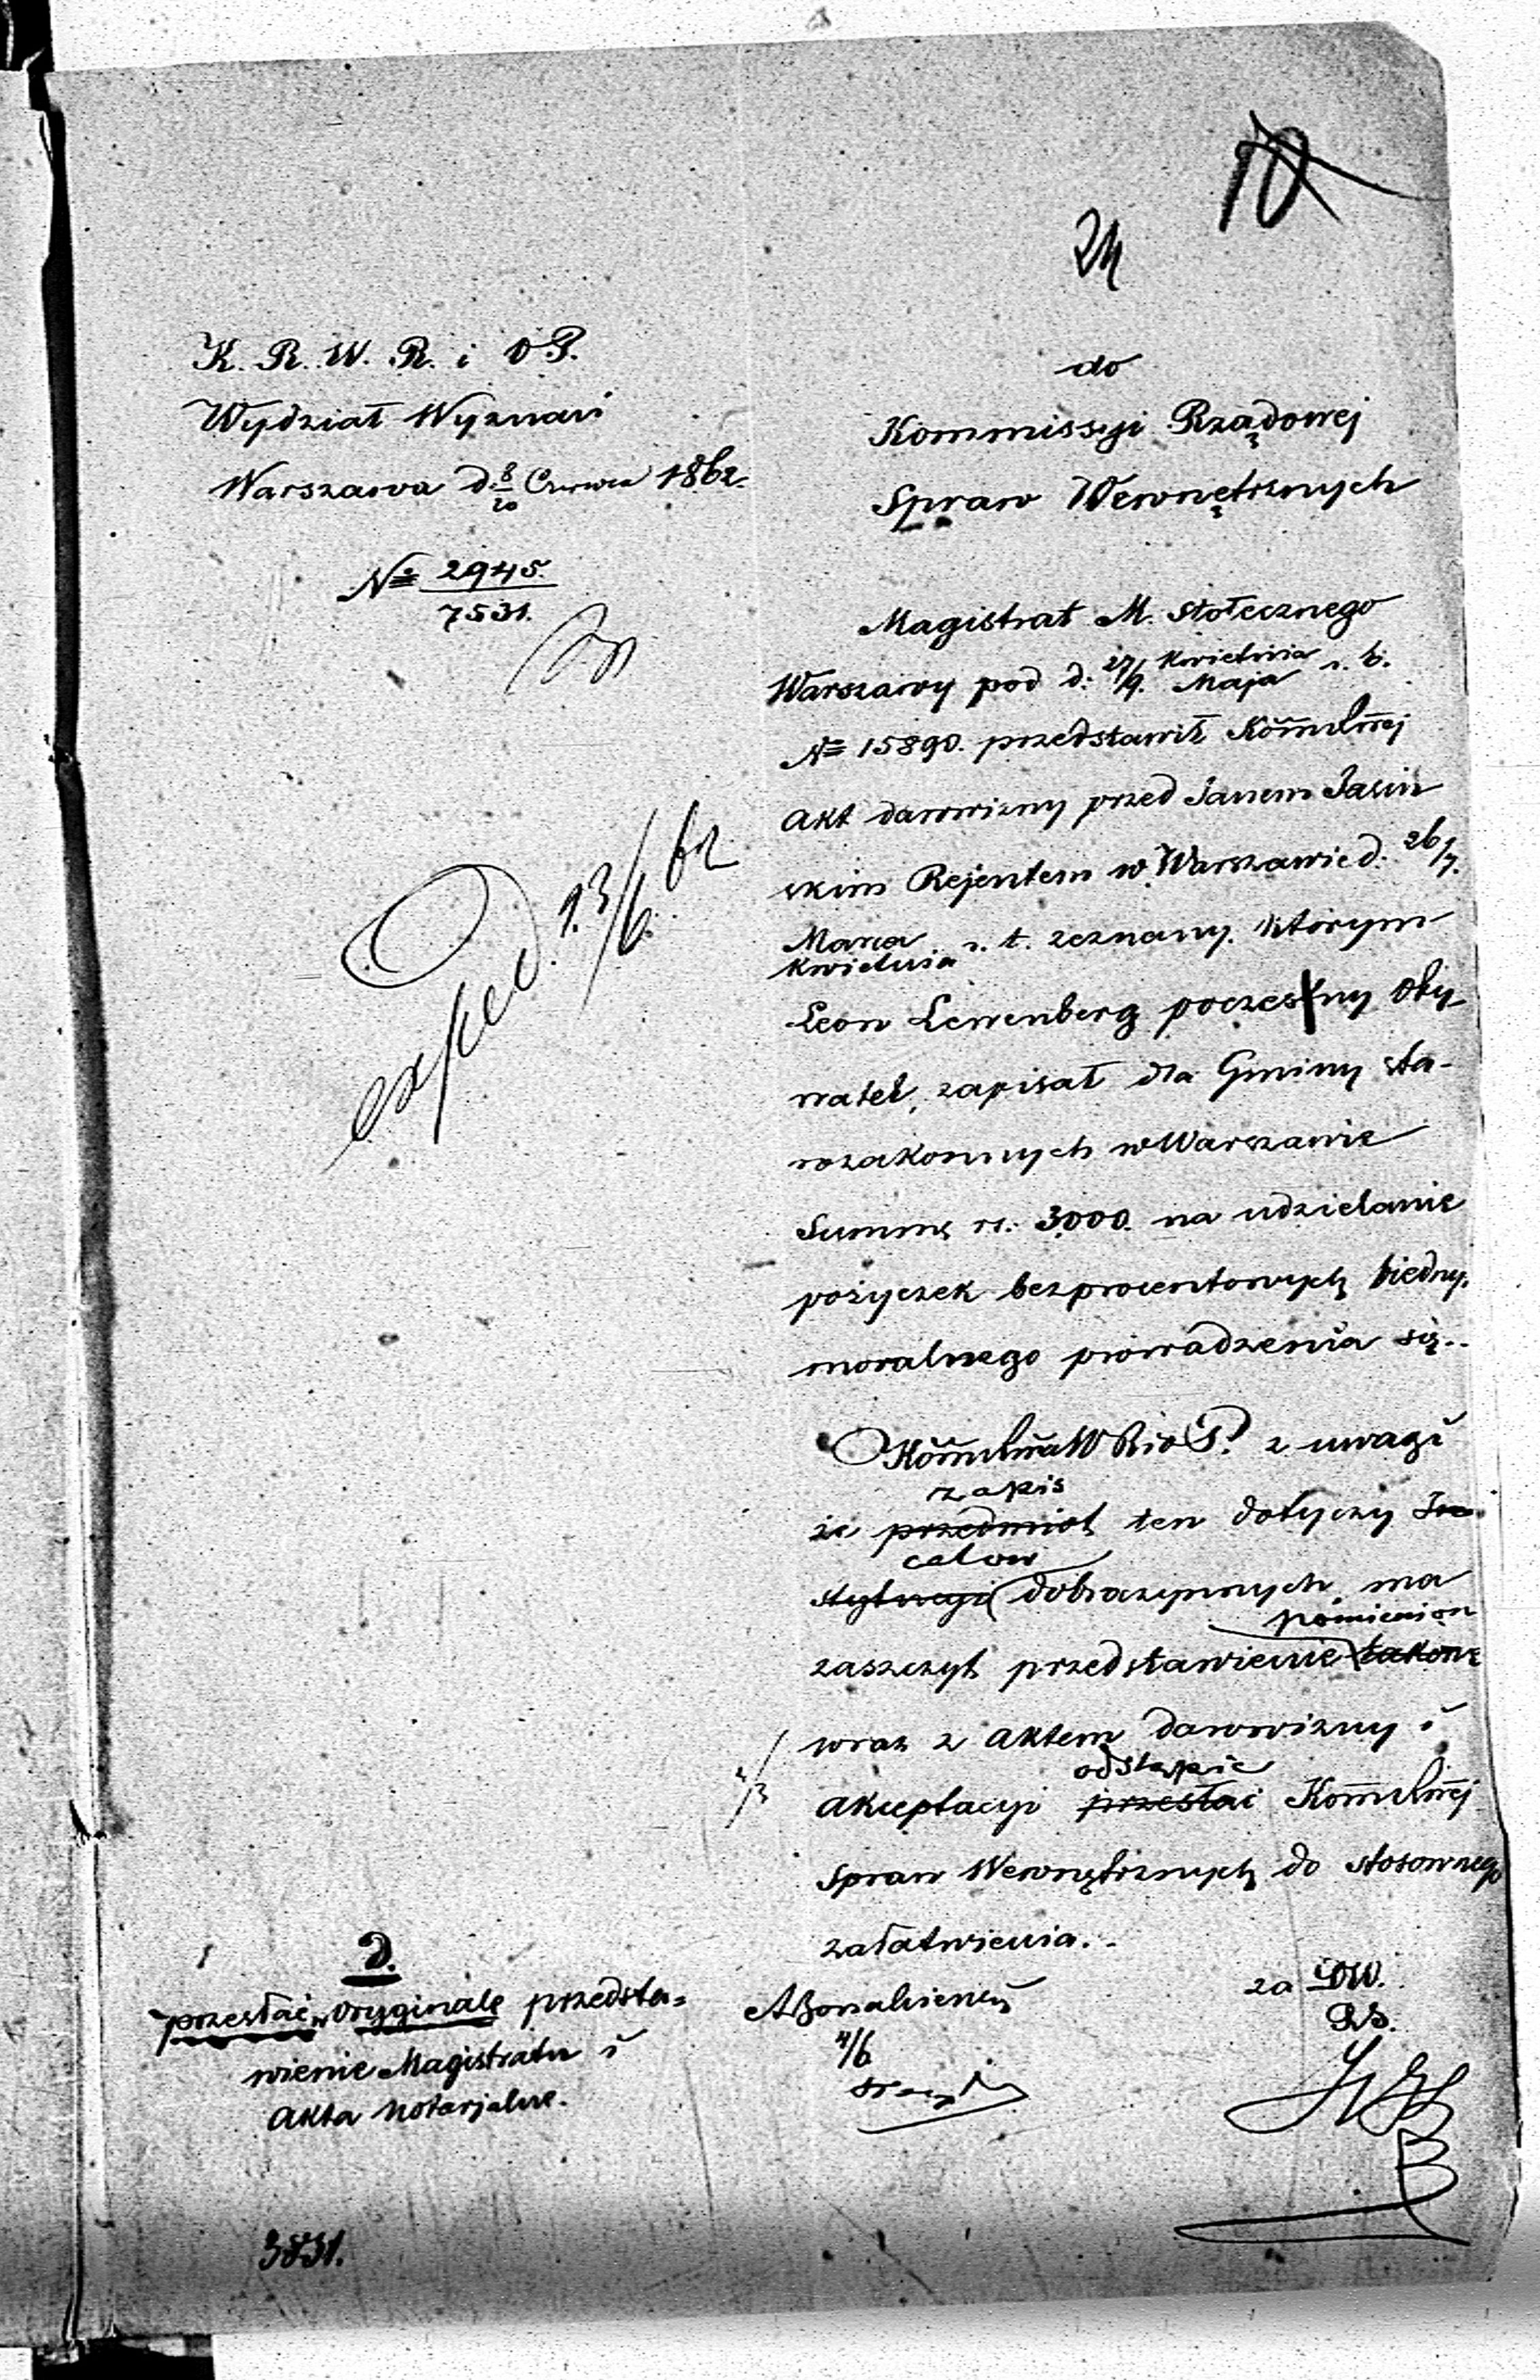 10
24
K. R. W. R. i O. P.
Wydział Wyznań
Warszawa d. 8/20 Czerwca 1862.
№ 2945.
7531.
exped. 13/6. 62
do
Kommissyi Rządowej
Spraw Wewnętrznych
Magistrat M. Stołecznego
Warszawy pod d: 27/9. Kwietnia Maja r. b.
№ 15890. przedstawił
Akt darowizny przed Janem Jasiń
skim Rejentem w Warszawie d. 26/7.
Marca Kwietnia r. t. zeznany. którym
Leon Lewenberg poczesny Oby-
watel, zapisał dla Gminy sta-
rozakonnych w Warszawie
Summę rs. 3000. na udzielanie
pożyczek bezprocentowych biedny.
moralnego prowadzenia się..
W R i O P. z uwagi
zapis
że przedmiot ten dotyczy
celow
dobroczynnych, ma
pomienion
zaszczyt przedstawienie takowe
wraz z aktem darowizny i
odstąpić
akceptacyi przesłać
Spraw Wewnętrznych do stosownego
załatwienia..
za DW.
4/6
D.
przesłać w oryginale przedsta=
wienie Magistratu i
Akta Notarjalne.
3831.